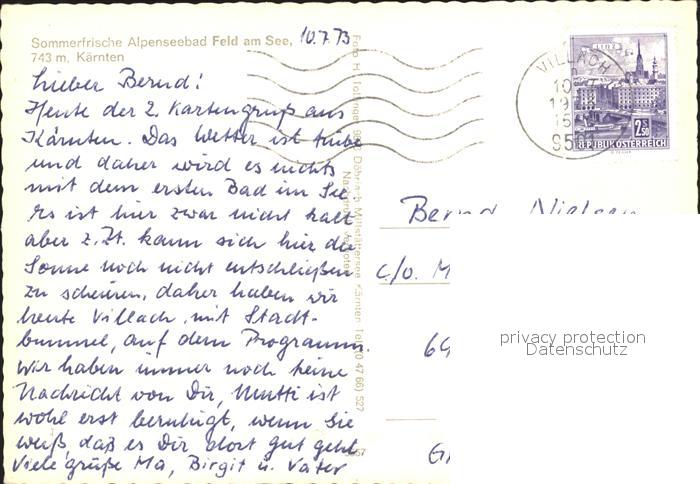 Sommerfrische Alpenseebad Feld am See, 10.7.73
743 m, Kärnten
Lieber Bernd!
Heute der 2. Kartengruß aus
Kärnten. Das Wetter ist trübe
und daher wird es nichts
mit dem ersten Bad im See.
Es ist hier zwar nicht kalt
aber z.Zt. kann sich hier die
Sonne noch nicht entschließen
zu scheinen, daher haben wir
heute Villach mit Stadt-
bummel, auf dem Programm.
Wir haben immer noch keine
Nachricht von Dir, Mutti ist
wohl erst beruhigt, wenn sie
weiß, daß es Dir dort gut geht.
Viele Grüße Ma, Birgit u. Vater
Millstättersee Kärnten Tel. (0 47 66) 527
VILLACH
9501
LINZ
2.50
REPUBLIK ÖSTERREICH
Bernd Nielsen
c/o. M
privacy protection
Datenschutz